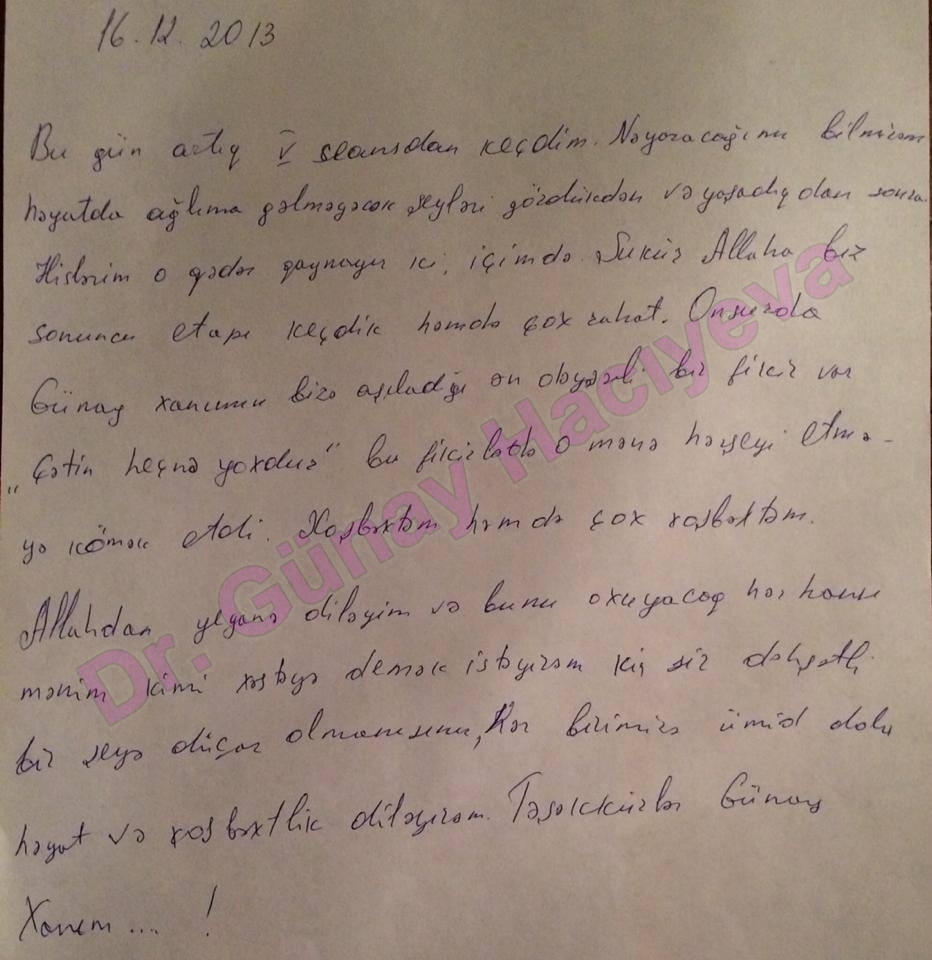 16.12.2013
Bu gün artıq V seansdan keçdim. Nə yazacağımı bilmirəm
həyatda ağlıma gəlməyəcək şeyləri gördükdən və yaşadıqdan sonra.
Hislərim o qədər qaynayır ki, içimdə. Şükür Allaha biz
sonuncu etapı keçdik həmdə çox rahat. Onsuzda
Günay xanımın bizə aşıladığı ən dəyərli bir fikir var
„Çətin heçnə yoxdur" bu fikirlədə O mənə hərşeyi etmə-
yə kömək etdi. Xoşbəxtəm həmdə çox xoşbəxtəm.
Allahdan yeganə diləyim və bunu oxuyacaq hər hansı
mənim kimi xəstəyə demək istəyirəm ki, siz dəhşətli
bir şeyə düçar olmamısınız, Hər birimizə ümid dolu
həyat və xoşbəxtlik diləyirəm. Təşəkkürlər Günay
Xanım ... !
Dr. Günay Hacıyeva